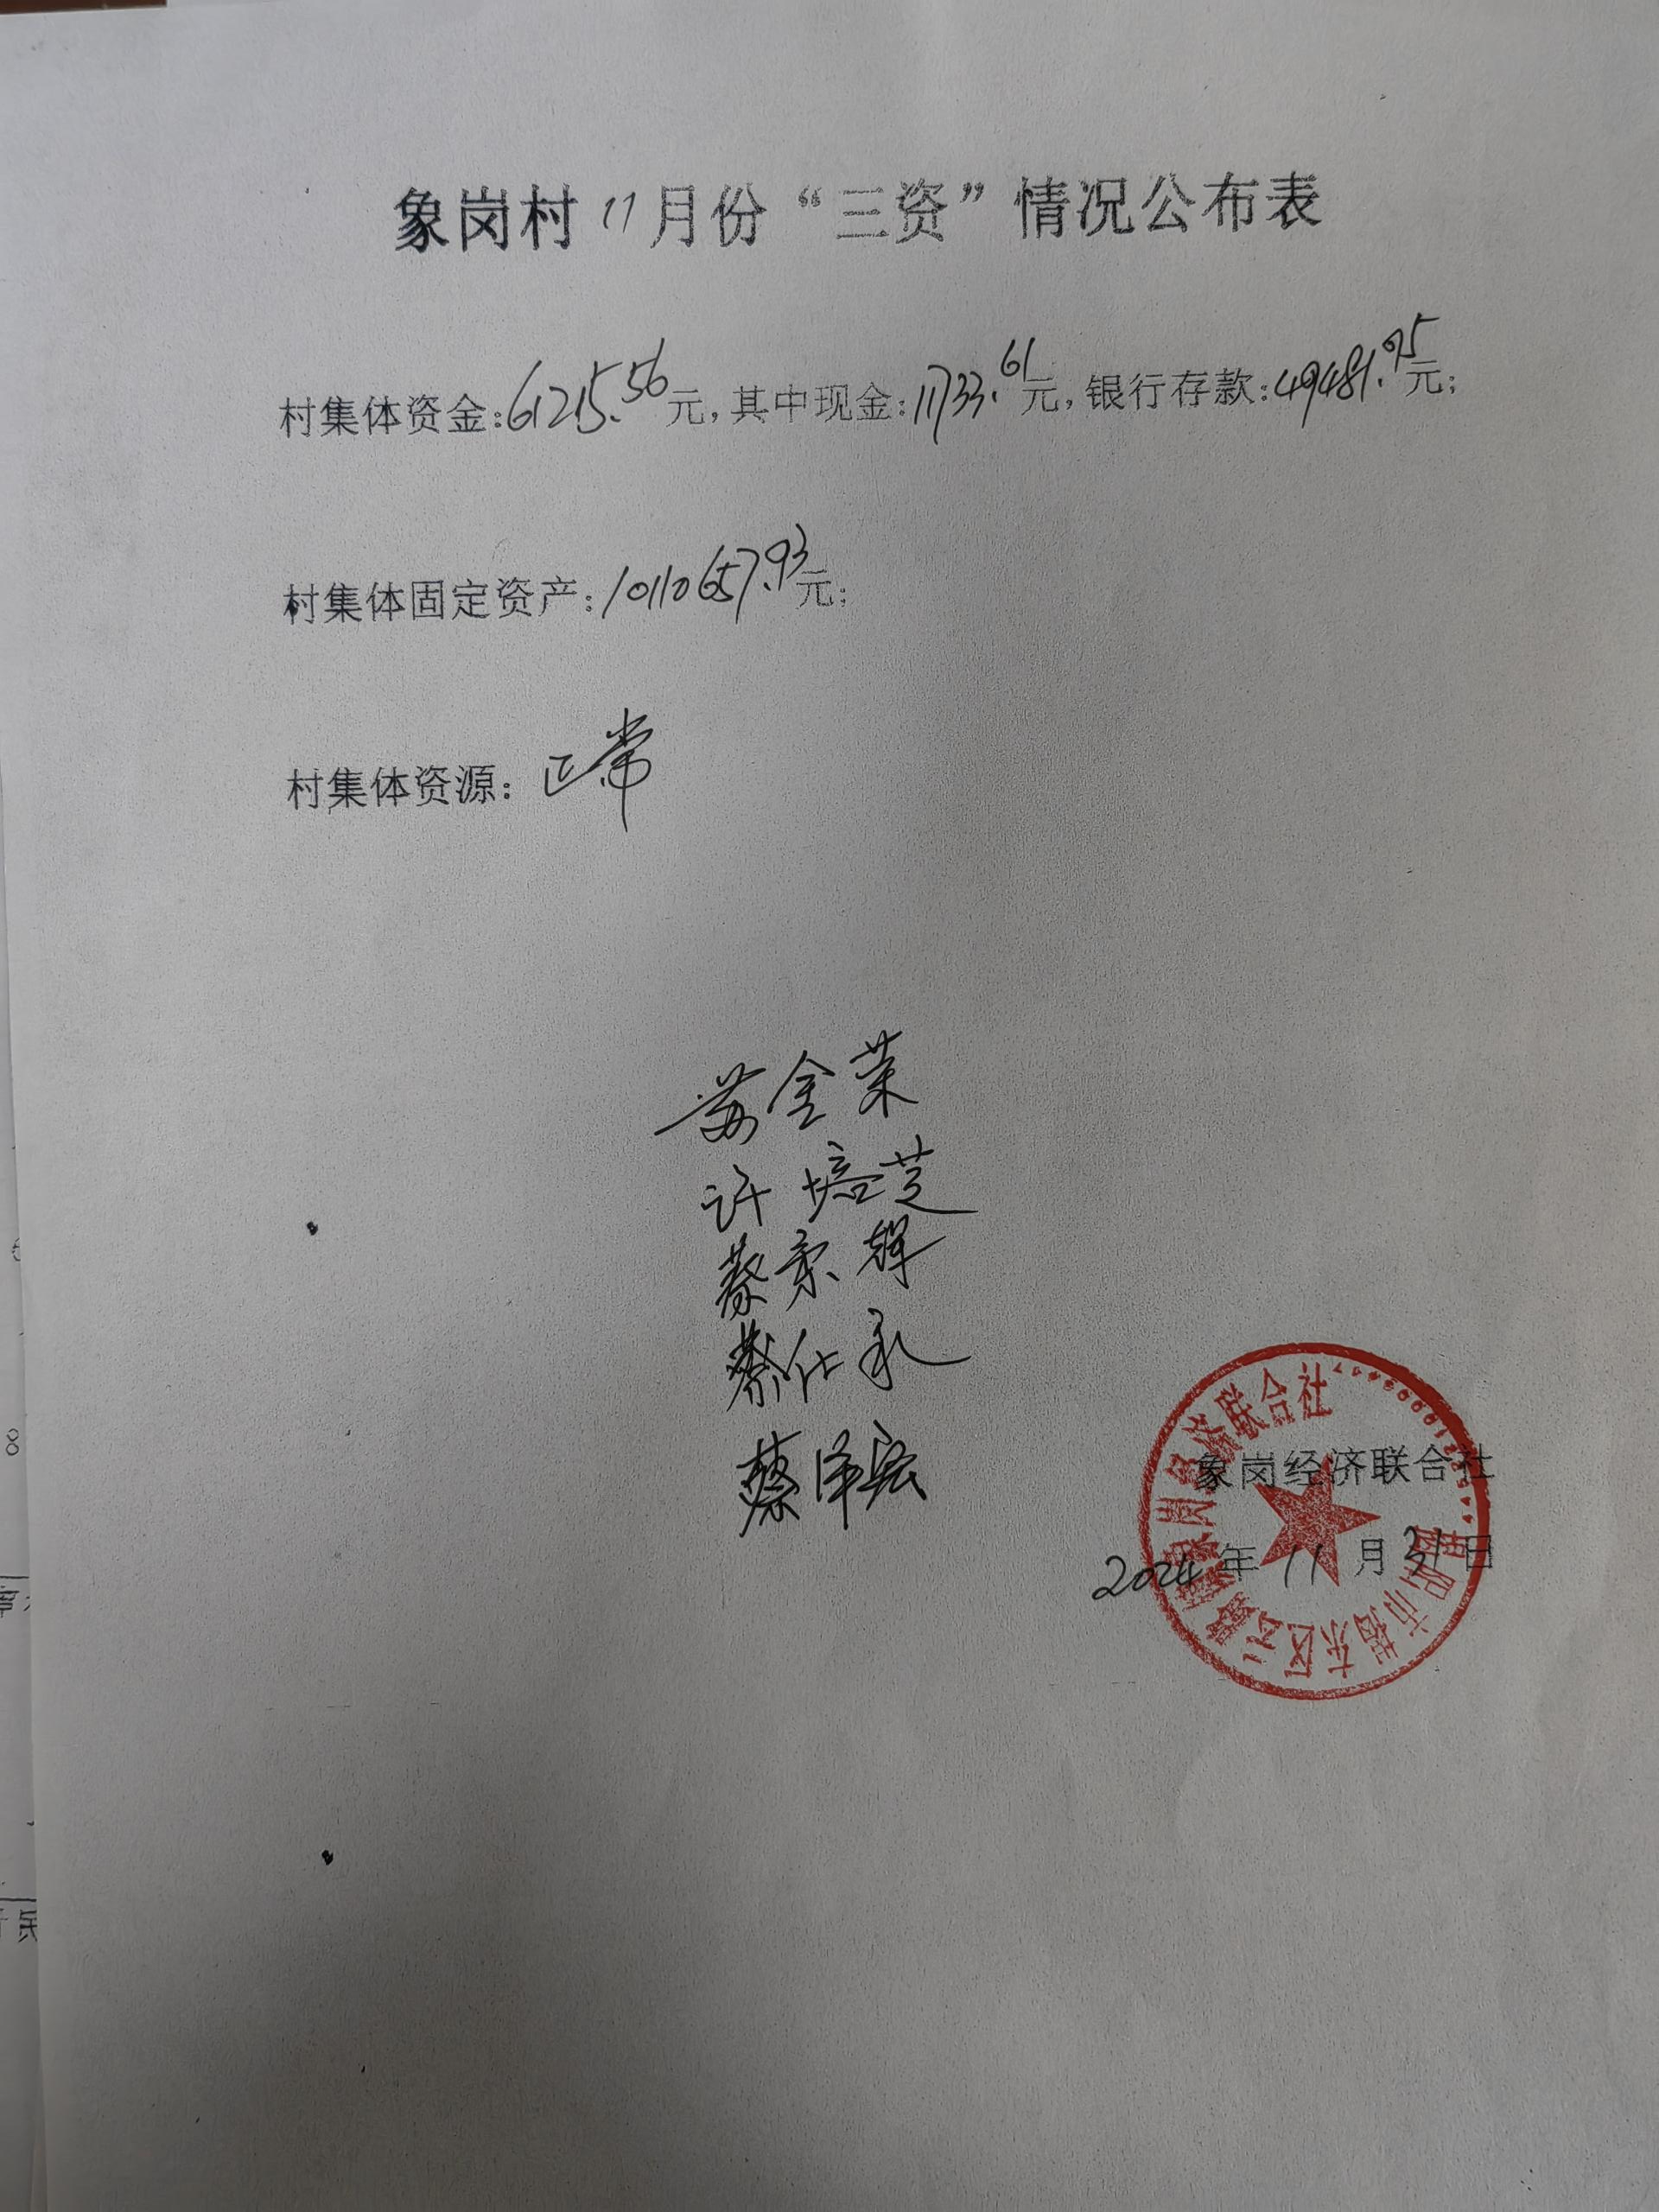 象岗村11月份“三资”情况公布表
村集体资金:61215.56元,其中现金:11733.61元,银行存款:49481.95元;
村集体固定资产:10110657.93元;
村集体资源:正常
苏金荣
许培芝
蔡索辉
蔡仕承
蔡泽宏
象岗经济联合社
2024年11月31日
揭阳市揭东区云路镇象岗经济联合社